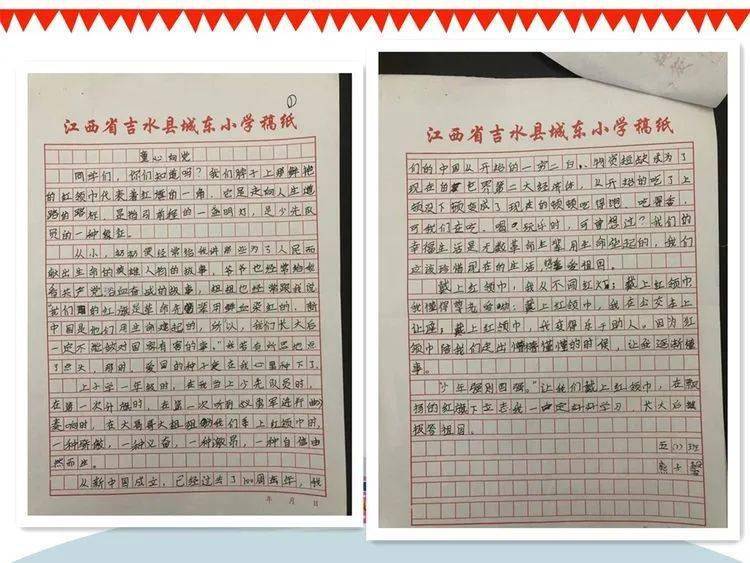 ①
江西省吉水县城东小学稿纸
童心向党
同学们，你们知道吗？我们脖子上那鲜艳
的红领巾代表着红旗的一角，它是走向人生道
路的路标，是指引前程的一盏明灯，是少先队
员的一种象征。
从小，奶奶就经常给我讲那些为了人民而
献出生命的英雄人物的故事，爷爷也经常给我
看共产党浴血奋战的故事，姐姐也经常跟我说
“我们的红旗是革命先烈用鲜血染红的，新
中国是他们用生命建起的，所以，我们长大后
一定不能做对国家有害的事。”我若有所思地点
了点头，那时，爱国的种子就在我心里种下了。
上小学一年级时，在我当上少先队员时，
在第一次升旗时，在第一次听到《义勇军进行曲》
奏响时，在大哥哥大姐姐为我们系上红领巾时，
一种骄傲，一种兴奋，一种激昂，一种自信油
然而生。
从新中国成立，已经过去了100周年，我
年 月 日
江西省吉水县城东小学稿纸
们的中国从开始的一穷二白、物资短缺成为了
现在的世界第二大经济体，从开始的吃了上
顿没下顿变成了现在的顿顿吃得饱，吃得香，
可我们在吃、喝、玩乐时，可曾想过？我们的
幸福生活是无数革命上辈用生命垒起的，我们
应该珍惜现在的生活，热爱祖国。
戴上红领巾，我从不闯红灯；戴上红领巾
我懂得尊老爱幼；戴上红领巾，我在公交车上
让座；戴上红领巾，我变得乐于助人。因为红
领巾陪我们走出懵懵懂懂的时候，让我逐渐懂
事。
“少年强则国强。”让我们戴上红领巾，在飘
扬的红旗下立志我一定好好学习，长大后
报答祖国。
五（1）班
熊子馨